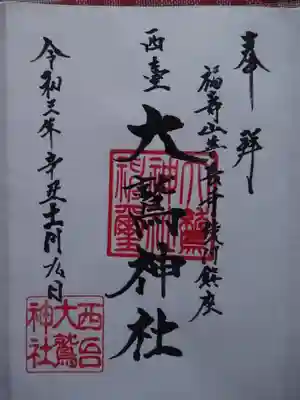 奉拝
福寿山善長寺境内鎮座
西臺
大鷲神社
令和三年辛丑十一月九日
大鷲
神社
西台
大鷲
神社